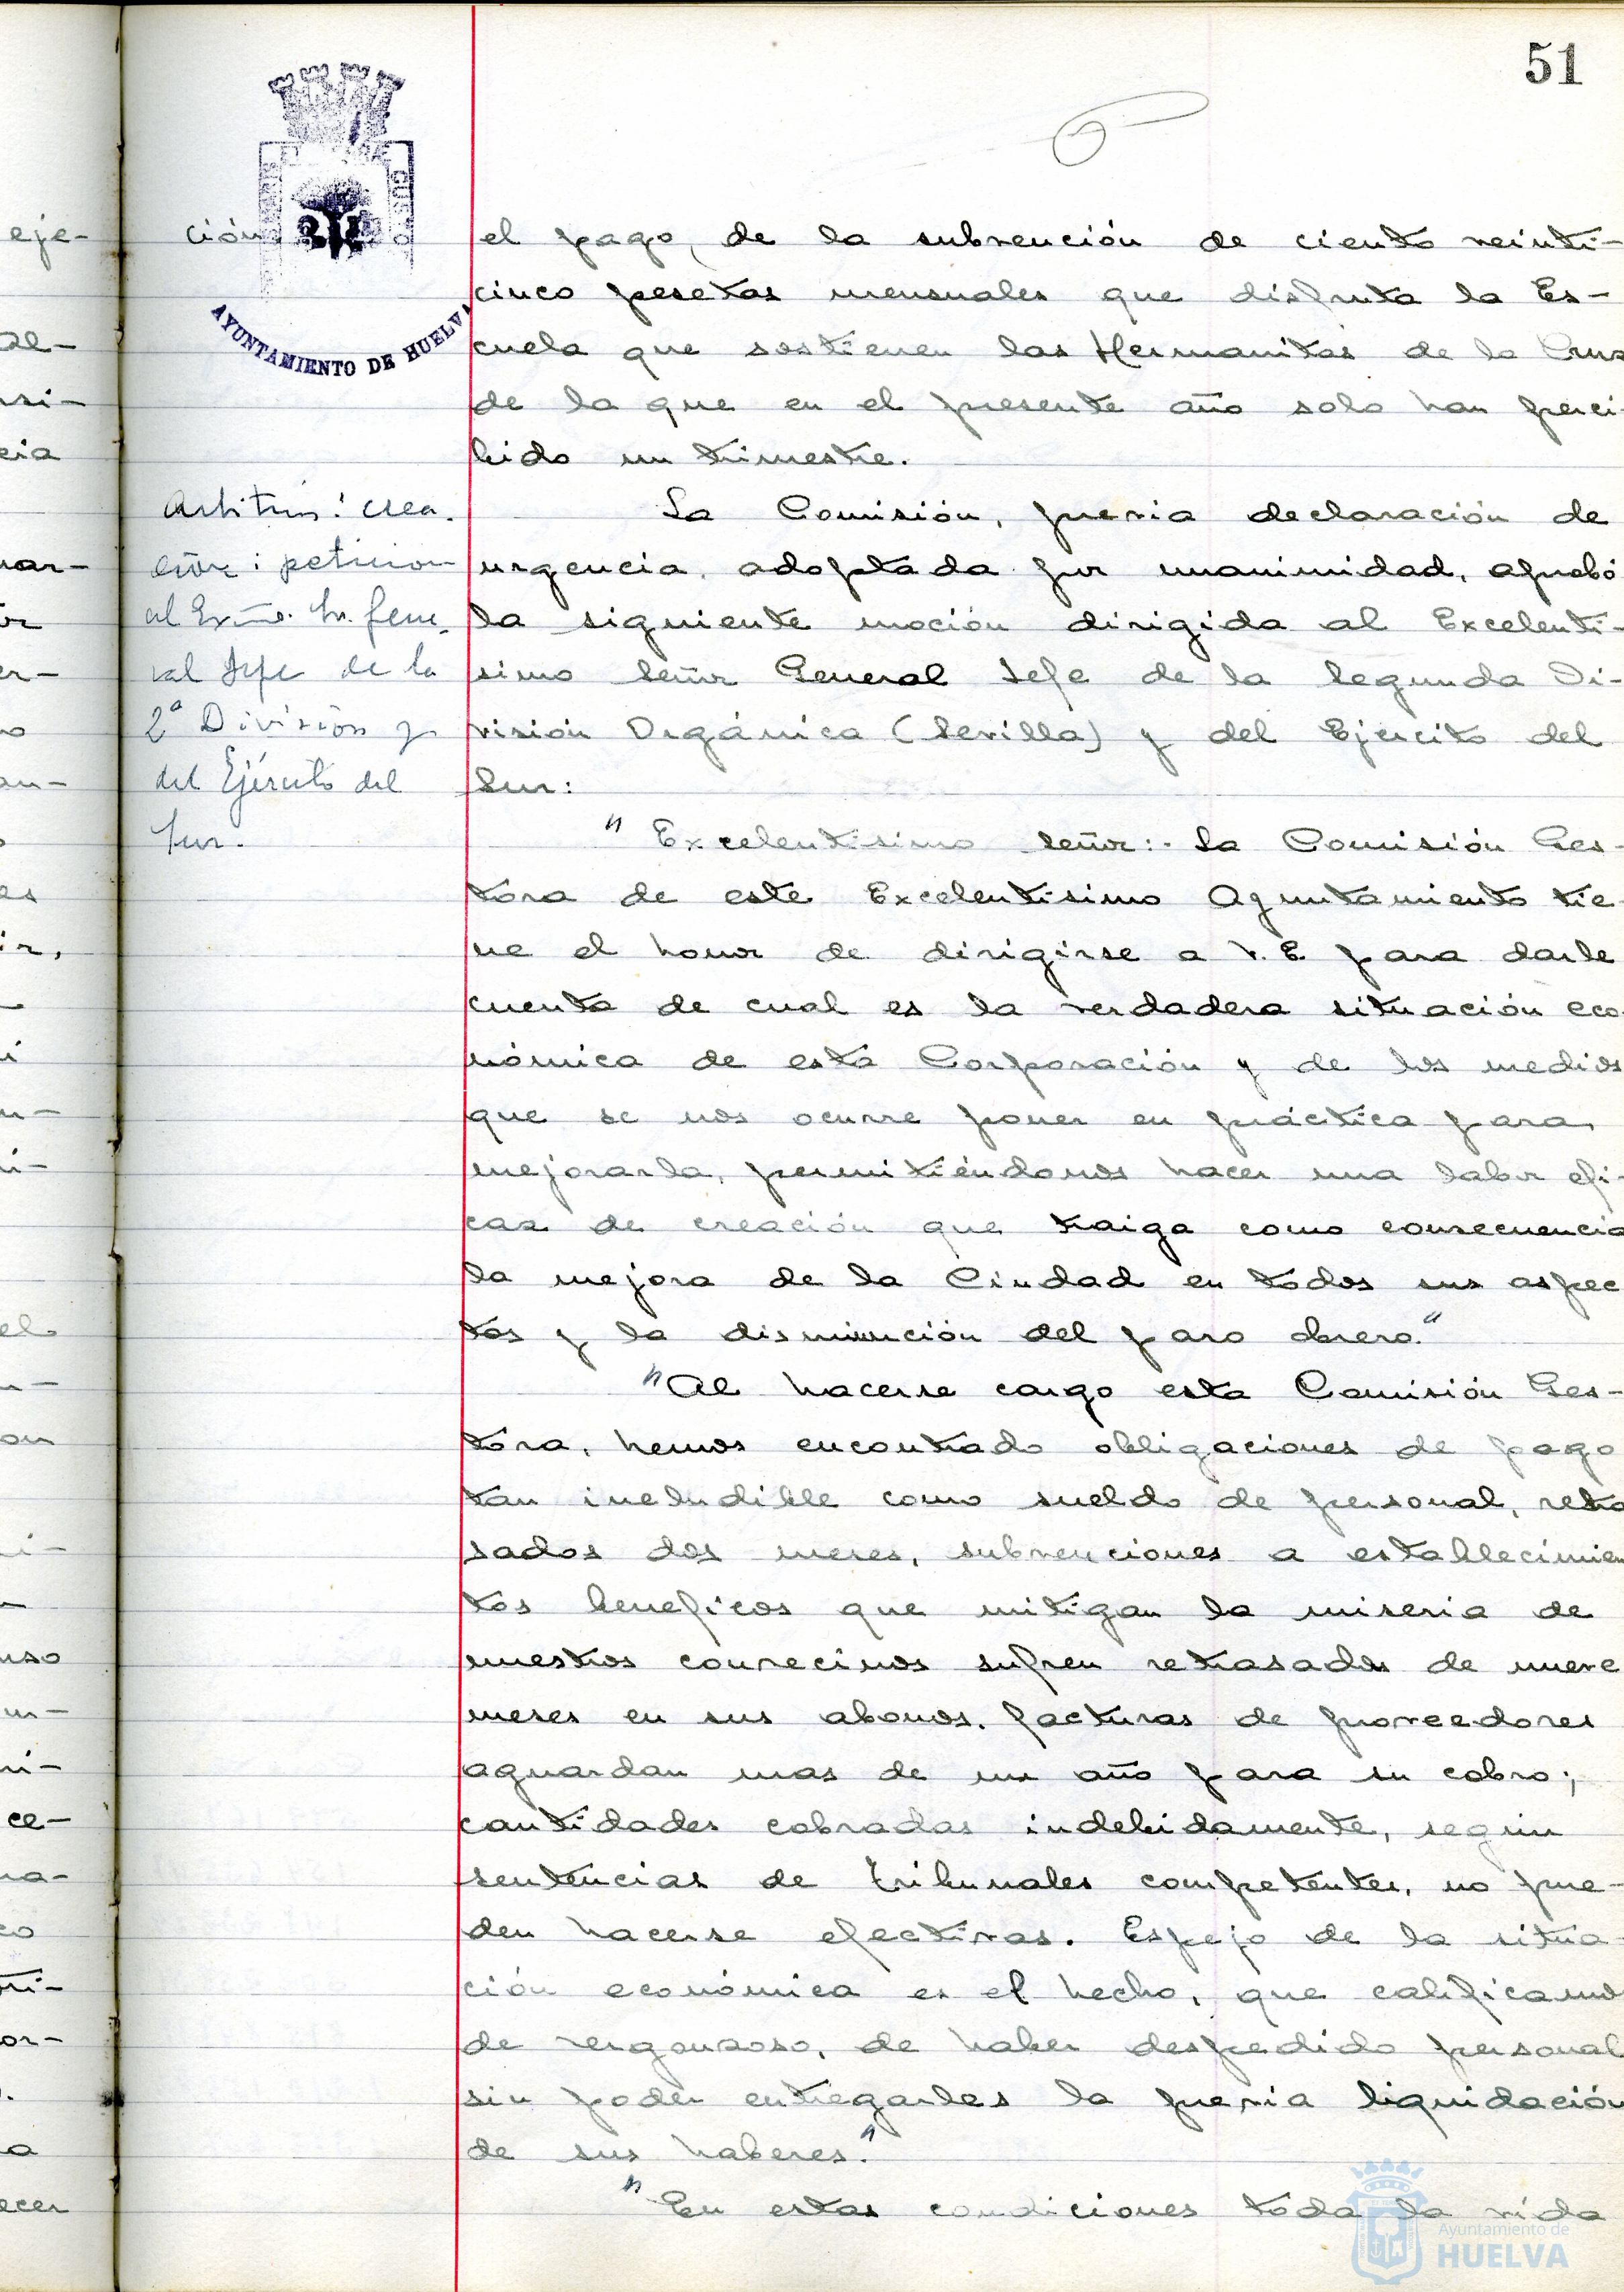 51
ción
AYUNTAMIENTO DE HUELVA
el pago, de la subvención de ciento veinti-
cinco pesetas mensuales que disfruta la Es-
cuela que sostienen las Hermanitas de la Cruz
de la que en el presente año solo han perci-
bido un trimestre.
Arbitrios: crea-
ción: peticion
al Exmo. Sr. Gene-
ral Jefe de la
2ª División y
del Ejército del
Sur.
La Comisión, previa declaración de
urgencia, adoptada por unanimidad, aprobó
la siguiente moción dirigida al Excelentí-
simo Señor General Jefe de la Segunda Di-
visión Orgánica (Sevilla) y del Ejercito del
Sur:
"Excelentísimo Señor:- La Comisión Ges-
tora de este Excelentísimo Ayuntamiento tie-
ne el honor de dirigirse a V.E para darle
cuenta de cual es la verdadera situación eco-
nómica de está Corporación y de los medios
que se nos ocurre poner en práctica para
mejorarla, permitiéndonos hacer una labor efi-
caz de creación que traiga como consecuencia
la mejora de la Ciudad en todos sus aspec
tos y la disminución del paro obrero."
"Al hacerse cargo esta Comisión Ges-
tora, hemos encontrado obligaciones de pago
tan ineludible como sueldo de personal, retra
sados dos meses, subvenciones a establecimien
tos beneficos que mitigan la miseria de
nuestros convecinos sufren retrasados de nueve
meses en sus abonos. facturas de proveedores
aguardan mas de un año para su cobro;
cantidades cobradas indebidamente, según
sentencias de tribunales competentes, no pue-
den hacerse efectivas. Espejo de la situa-
ción económica es el hecho, que calificamos
de vergonzoso, de haber despedido personal
sin poder entregarles la previa liquidación
de sus haberes."
"En estas condiciones toda la vida
Ayuntamiento de
HUELVA